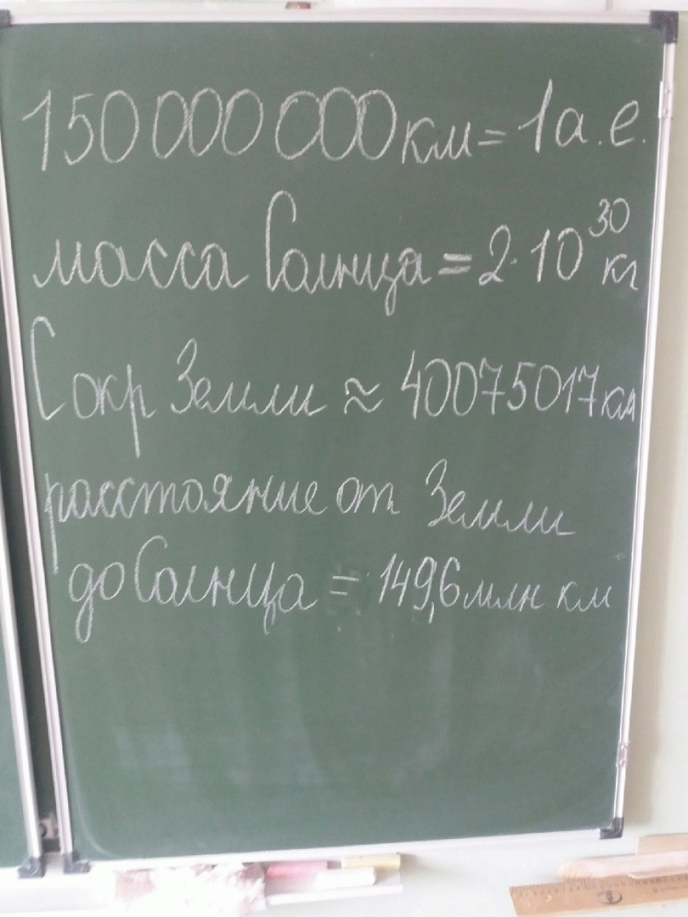 150 000 000 км = 1 а.е.
масса Солнца = 2·10³⁰ кг
C окр Земли ≈ 40075017 км
расстояние от Земли
до Солнца = 149,6 млн км